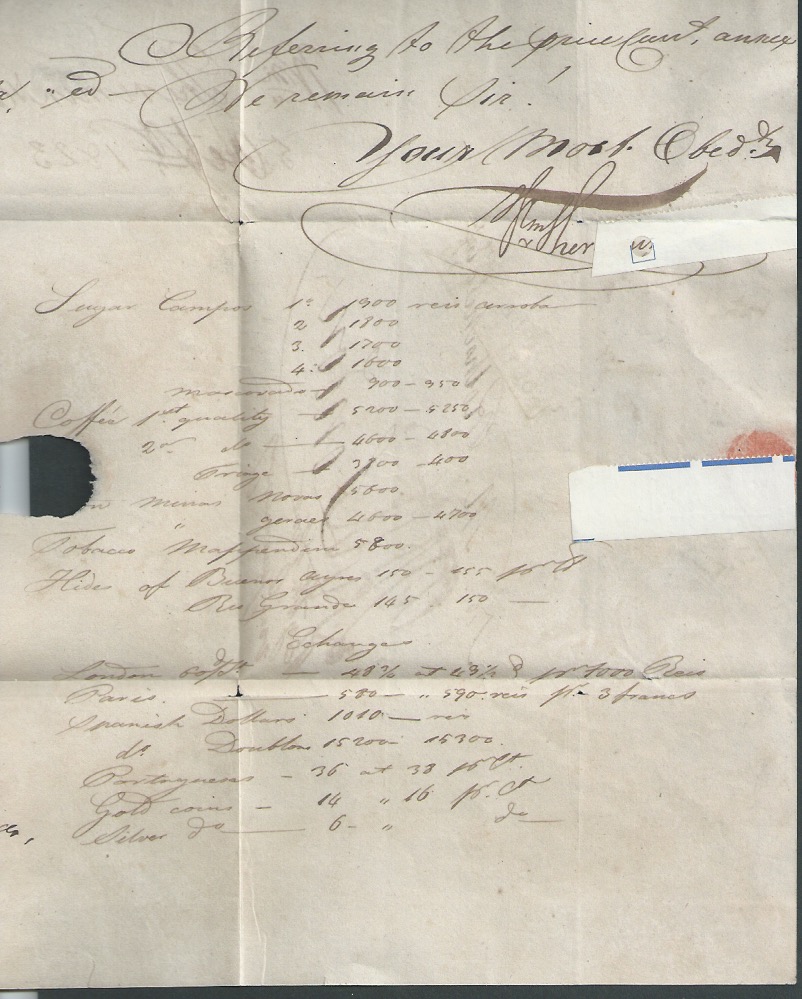 Referring to the price Curt. annex
ed — We remain Sir!
Your Most Obedt.
Sugar Campos 1a 1900 reis arroba
2 1800
3. 1700
4: 1600
mascovado 900 – 950
Coffee 1st quality 5200 – 5250
2nd do — 4600 – 4800
Triage 3800 – 400
Minas Novas 5600.
" geraes 4600 – 4700
Tobacco Mappendim 5800.
Hides of Buenos ayres 150 – 155 pr ℔
Rio Grande 145 . 150 —
Echanges
London 60 d/st — 48¾ at 49½ d pr 1000 Reis
Paris. — 580 — " 590 reis pr. 3 francs
Spanish Dollars 1010 — reis
do Doublons 15200 15300.
Portugueses – 36 at 38 pr Ct.
Gold coins – 14 " 16 pr. Ct
Silver do — 6 – " do —